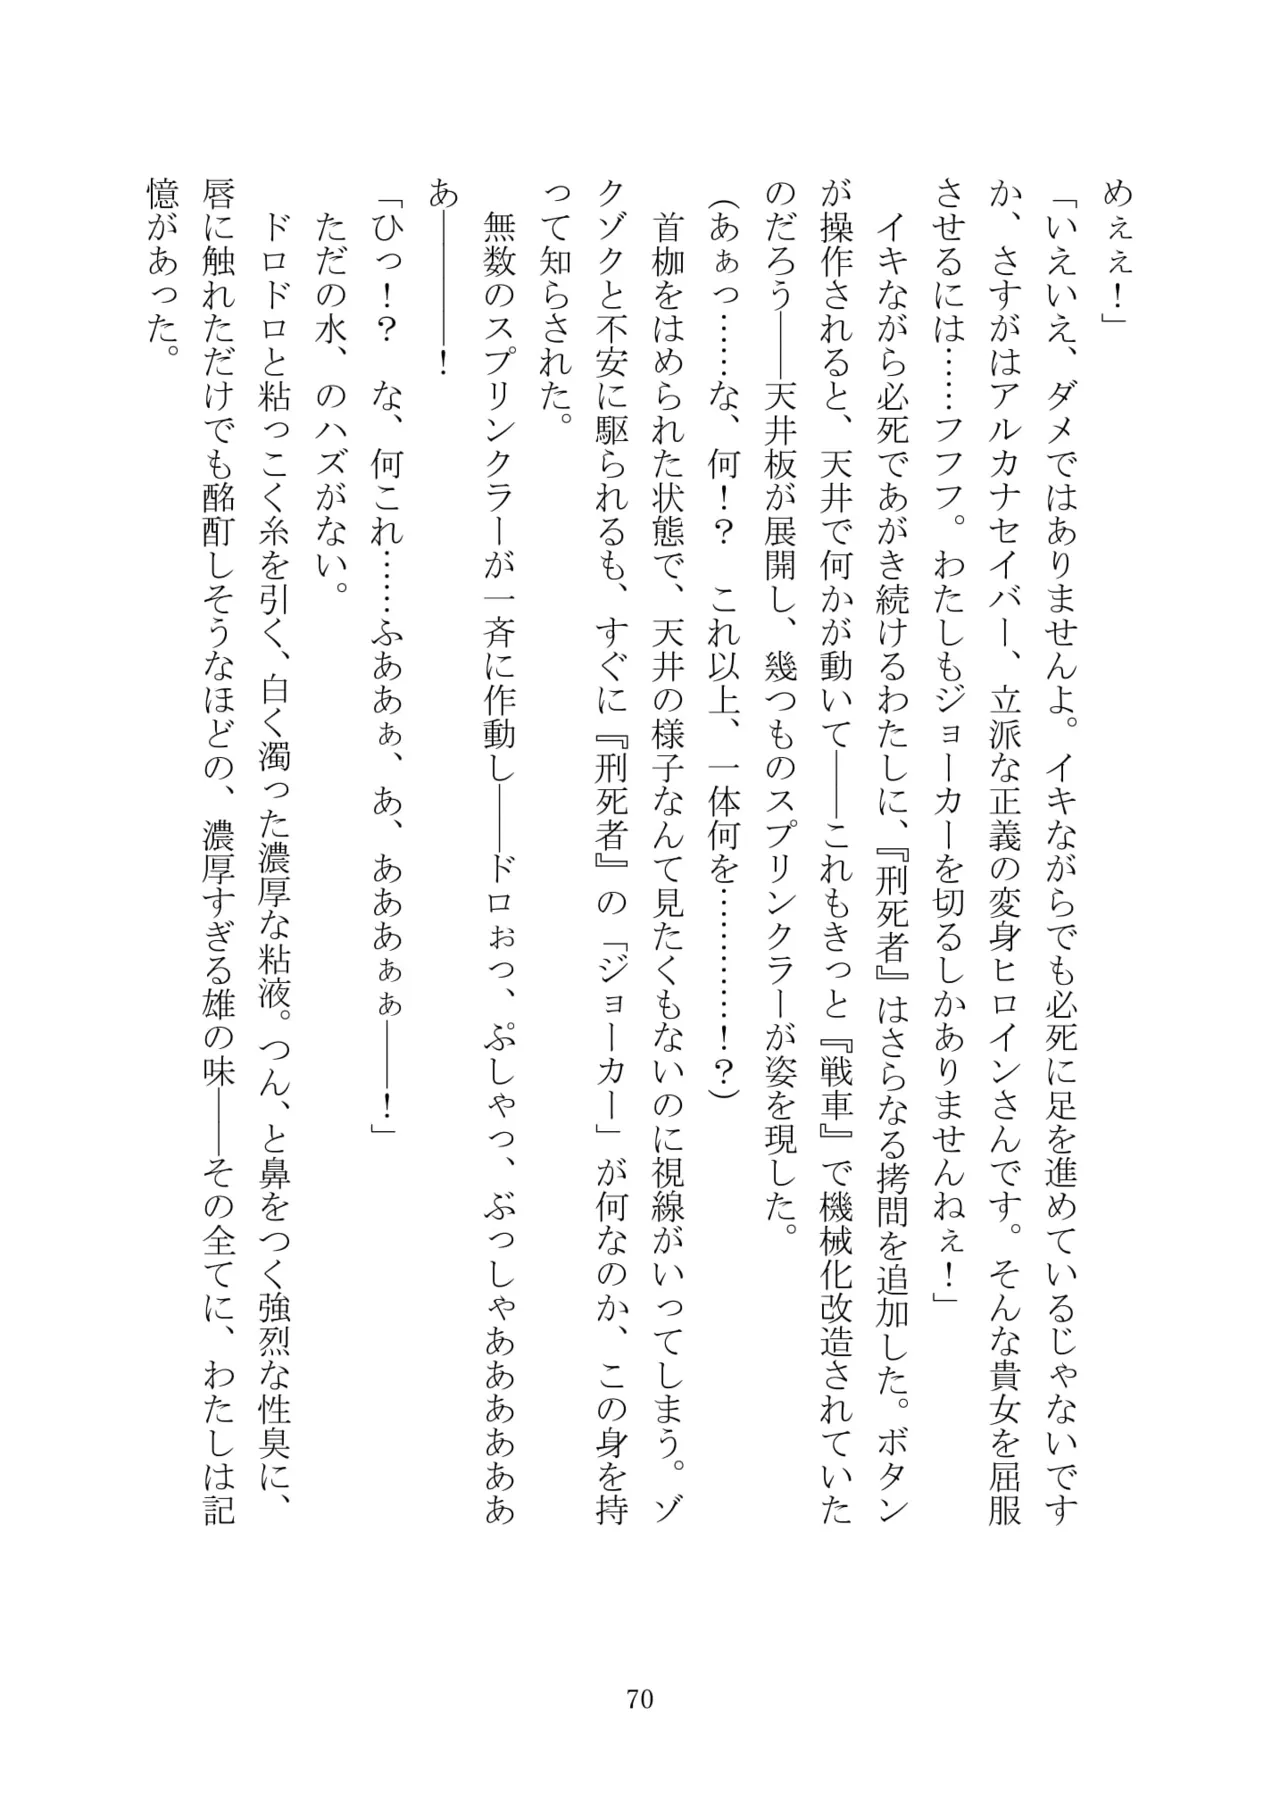 めぇぇ！」
「いえいえ、ダメではありませんよ。イキながらでも必死に足を進めているじゃないです
か、さすがはアルカナセイバー、立派な正義の変身ヒロインさんです。そんな貴女を屈服
させるには……フフフ。わたしもジョーカーを切るしかありませんねぇ！」
　イキながら必死であがき続けるわたしに、『刑死者』はさらなる拷問を追加した。ボタン
が操作されると、天井で何かが動いて――これもきっと『戦車』で機械化改造されていた
のだろう――天井板が展開し、幾つものスプリンクラーが姿を現した。
（あぁっ……な、何！？　これ以上、一体何を…………！？）
　首枷をはめられた状態で、天井の様子なんて見たくもないのに視線がいってしまう。ゾ
クゾクと不安に駆られるも、すぐに『刑死者』の「ジョーカー」が何なのか、この身を持
って知らされた。
　無数のスプリンクラーが一斉に作動し――ドロぉっ、ぷしゃっ、ぶっしゃああああああ
あ――――！
「ひっ！？　な、何これ……ふああぁ、あ、あああぁぁ――！」
　ただの水、のハズがない。
　ドロドロと粘っこく糸を引く、白く濁った濃厚な粘液。つん、と鼻をつく強烈な性臭に、
唇に触れただけでも酩酊しそうなほどの、濃厚すぎる雄の味――その全てに、わたしは記
憶があった。
70